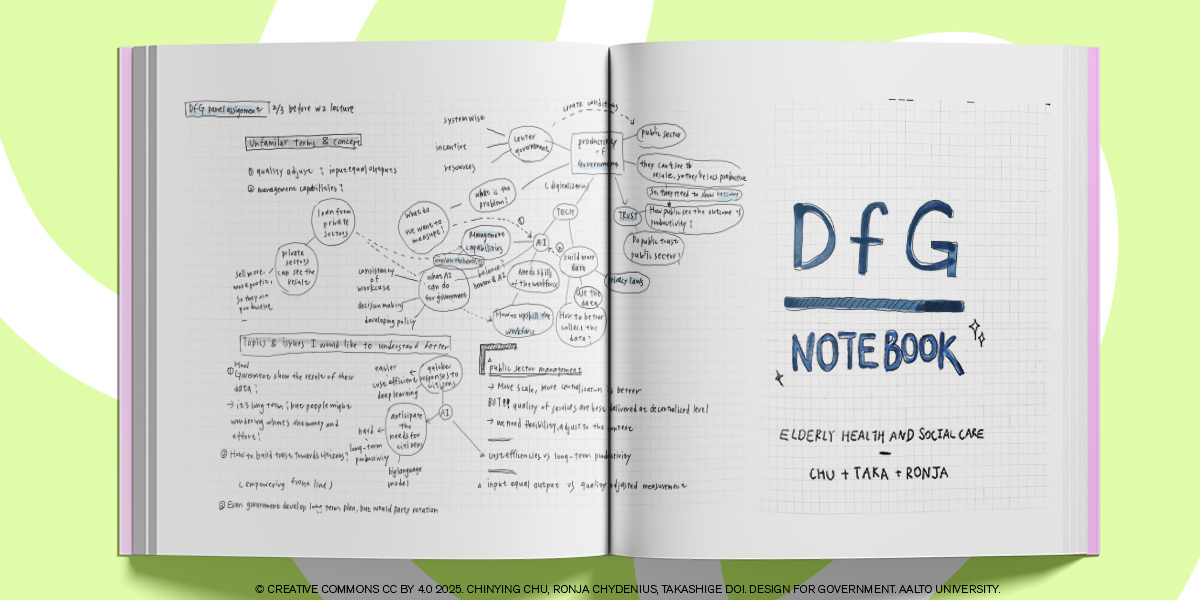 DfG panel assignment 2/3 before w2 lecture
Unfamilar terms & concept
① quality adjust ; input equal outputs
② management capabilities ?
system wise
incentive
resources
center
government
create conditions
productivity
of
Government
public sector
they can't see the
resale, so they're less productive
So, they need to show outcome
TRUST
How public see the outcome of
productivity ?
Do public trust
public sector ?
(digitalization)
TECH
what is the
problem?
What do
we want to
measure?
Management
capabilities
AI
build more
data
privacy laws
Use the
data
How to better
collect the
data?
Needs skills
of the workforce
How to upskill the
workforce
balance
human & AI
what AI
can do
for government
consistancy
of
workcase
decision making
developing policy
loan from
private
sectors
private
sectors
can see the
result
sell more,
more profit,
so they are
productive
Topics & issues I would like to understand better
① How
Government show the result of their
data ?
→ it's long term ; but people might
wondering where's the money and
effort ?
② How to build trust towards citizens?
(empowering front line)
③ Even government develop long term plan, but would party rotation
easier
cost efficient
deep learning
quicker
responses to
citizens
AI
anticipate
the
needs for
citizens
hard
long-term
productivity
big language
model
public sector management
→ Move scale, more centralization is better
BUT!! quality of services are best delivered at decentralised level
→ we need flexibility, adjust to the context
△ cost efficiencies vs long-term productivity
△ input equal output vs quality adjusted measurement
DfG
NOTEBOOK
ELDERLY HEALTH AND SOCIAL CARE
CHU + TAKA + RONJA
© CREATIVE COMMONS CC BY 4.0 2025. CHINYING CHU, RONJA CHYDENIUS, TAKASHIGE DOI. DESIGN FOR GOVERNMENT. AALTO UNIVERSITY.